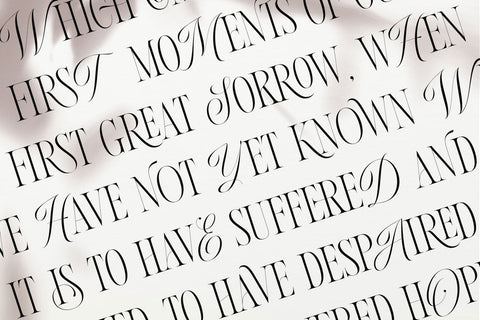 WHICH
FIRST MOMENTS OF
FIRST GREAT SORROW, WHEN
WE HAVE NOT YET KNOWN W
IT IS TO HAVE SUFFERED AND
ED, TO HAVE DESPAIRED
VERED HOP